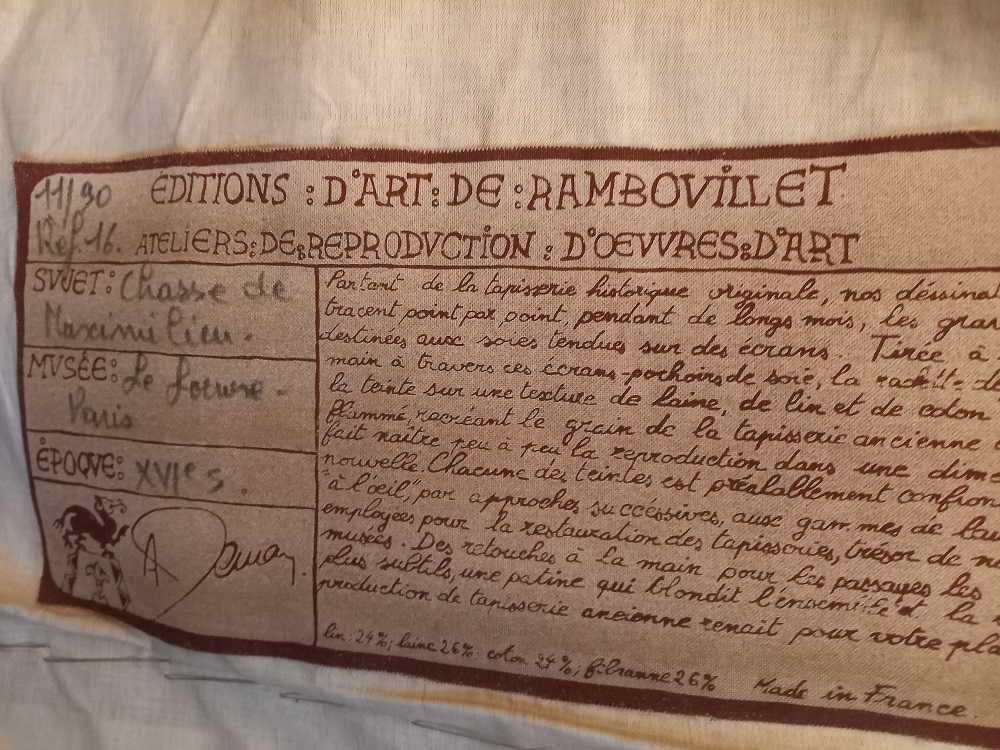 11/90
ÉDITIONS : D'ART : DE : RAMBOVILLET
Réf. 16. ATELIERS : DE : REPRODVCTION : D'OEVVRES : D'ART
SVJET : Chasse de
Maximilien.
MVSÉE : Le Louvre -
Paris
ÉPOQVE : XVIe s.
Partant de la tapisserie historique originale, nos déssinat
tracent point par point, pendant de longs mois, les gra
destinées aux soies tendues sur des écrans. Tirée à
main à travers ces écrans-pochoirs de soie, la
la teinte sur une texture de laine, de lin et de coton
flammé, recréant le grain de la tapisserie ancienne
fait naître peu à peu la reproduction dans une dime
nouvelle. Chacune des teintes est préalablement confion
"à l'oeil", par approches succéssives, aux gammes de lai
employées pour la restauration des tapisseries, trésor de n
musées. Des retouches à la main pour les passages les
plus subtils, une patine qui blondit l'ensemble et la
production de tapisserie ancienne renait pour votre pla
lin : 24% ; laine 26% : coton 24% ; fibranne 26% Made in France.